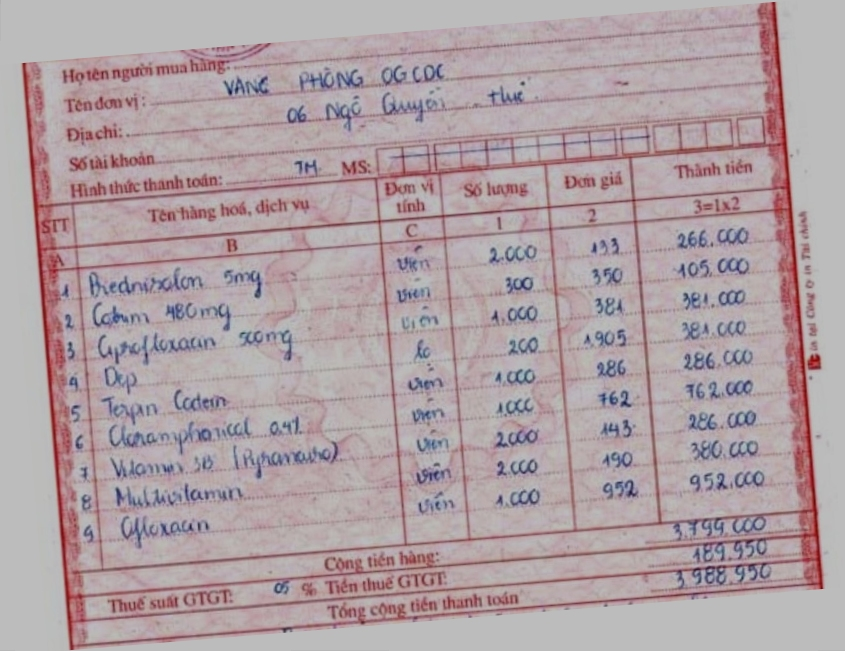 Họ tên người mua hàng:
Tên đơn vị: VĂNG PHÒNG OGCDC
Địa chỉ: 06 Ngô Quyền Huế
Số tài khoản
Hình thức thanh toán: TM. MS:
STT Tên hàng hoá, dịch vụ Đơn vị tính Số lượng Đơn giá Thành tiền
A B C 1 2 3=1x2
1 Brednisalon 5mg viên 2.000 133 266.000
2 Cobum 480mg viên 300 350 105.000
3 Ciprofloxacin 500mg viên 1.000 381 381.000
4 Dep lo 200 1.905 381.000
5 Terpin Codein viên 1.000 286 286.000
6 Cloramphonical 0,4% viên 1000 762 762.000
7 Vitamin 3B viên 2000 143 286.000
8 Multivitamin viên 2.000 190 380.000
9 Ofloxacin viên 1.000 952 952.000
Cộng tiền hàng: 3.799.000
Thuế suất GTGT: 05 % Tiền thuế GTGT: 189.950
Tổng cộng tiền thanh toán 3.988.950
in tại Công ty in Tài chính